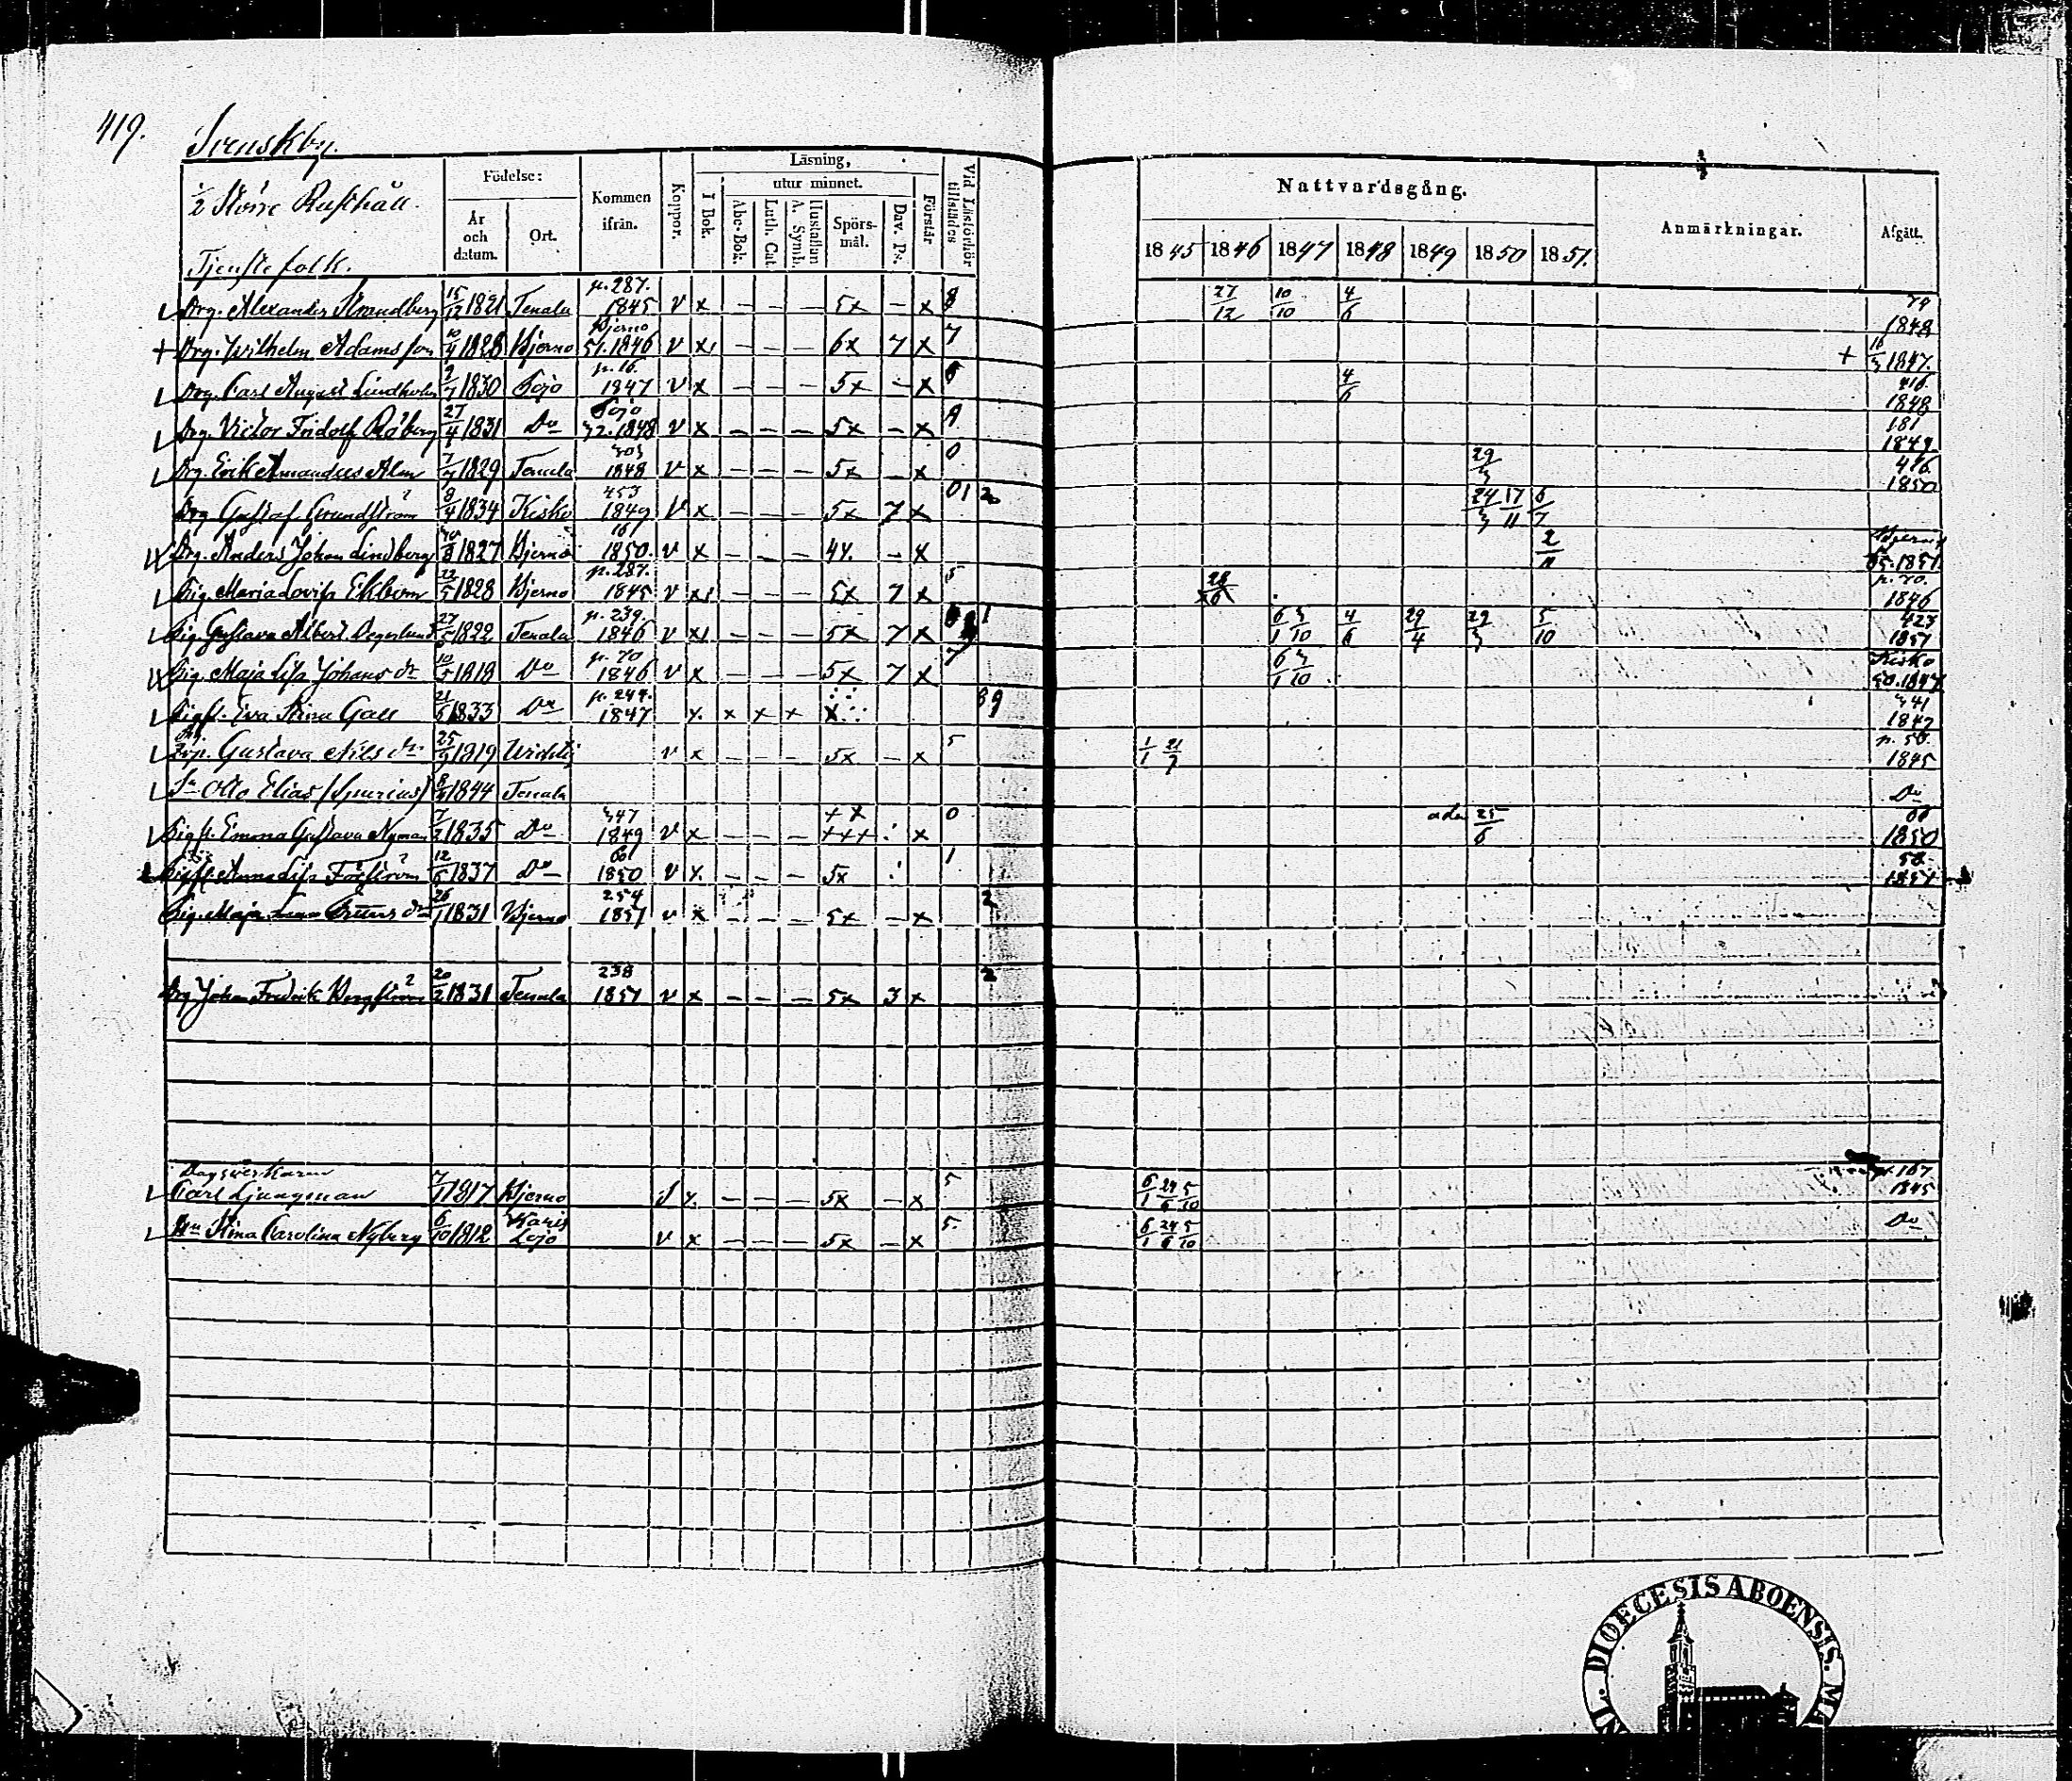 419.
Svenskby.
1/2 Större Rusthåll.
Tjenstefolk.
Födelse:
År och datum.
Ort.
Kommen ifrån.
Koppor.
Läsning,
I Bok.
utur minnet.
Abc-Bok.
Luth. Cat.
Hustaflan A. Symb.
Spörsmål.
Dav. Ps.
Förstår
Vid Läsförhör tillstädes
Nattvardsgång.
1845 1846 1847 1848 1849 1850 1851.
Anmärkningar.
Afgått.
Drg. Alexander Strandberg 15/12 1821 Tenala p. 287. 1845 v x — — — 5x — x 8 27/12 10/10 4/6 1848
+ Drg. Wilhelm Adamsson 10/4 1828 Bjerno Bjerno 51.1846 v x — — — 6x 7 x 7 + 1847.
Drg. Carl August Lindholm 1830 Pojo p. 16. 1847 v x — — — 5x — x 4/6 416. 1848
Drg. Victor Fridolf Röberg 27/4 1831 Do Pojo 1848 v x — — — 5x — x 181 1849
Drg. Erik Amandus Alm 1829 Tenala 1848 v x — — — 5x — x 0 29/3 416. 1850
Drg Gustaf Grundström 8/4 1834 Kisko 453 1849 v x — — — 5x 7 x 01 2 24/3 17/11 6/7
Drg. Anders Johan Lindberg 1827 Bjerno 161 1850. v x — — — 4x. — x 2/11 Bjerno 1851
Pig. Maria Lovisa Ekbom 1828 Bjerno p. 287. 1845 v x — — — 5x 7 x 5 28/6 p. 70. 1846
Pig. Gustava Albert. Degerlund 27/5 1822 Tenala p. 239. 1846 v x — — — 5x 7 x 1 6/1 3/10 4/6 29/4 29/3 5/10 427 1851
Pig. Maja Lisa Johans dr 10/5 1819 Do p. 70 1846 v x — — — 5x 7 x 7 6/1 3/10 Kisko 1847
Pigfl. Eva Stina Gall 21/6 1833 Do p. 249. 1847 x x x x x 89 341 1847
Gustava Nils dr 25/9 1819 Wichtis v x — — — 5x — x 5 1/1 21/7 p. 50. 1845
Sn Otto Elias (Spurius) 1844 Tenala Do
Pigfl. Emma Gustava Nyman 7/2 1835 Do 347 1849 v x — — — x x +++ x 0 adm 25/6 1850
Pigfl. Anna Lisa Forsström 12/6 1837 Do 1850 v x. — — — 5x 1 58. 1851
Pig. Maja 26/1 1831 Bjerno 254 1851 v x — — — 5x — x 2
Drg Johan Fredrik Bergström 20/2 1831 Tenala 238 1851 v x — — — 5x 3 x 2
Dagsverkaren
Carl Ljungman 1817 Bjerno x. — — — 5x — x 5 6/1 24/6 5/10 167 1845
Hu Stina Carolina Nyberg 6/10 1812 Karis Lojo v x — — — 5x — x 5. 6/1 24/6 5/10 Do
DIOECESIS ABOENSIS.